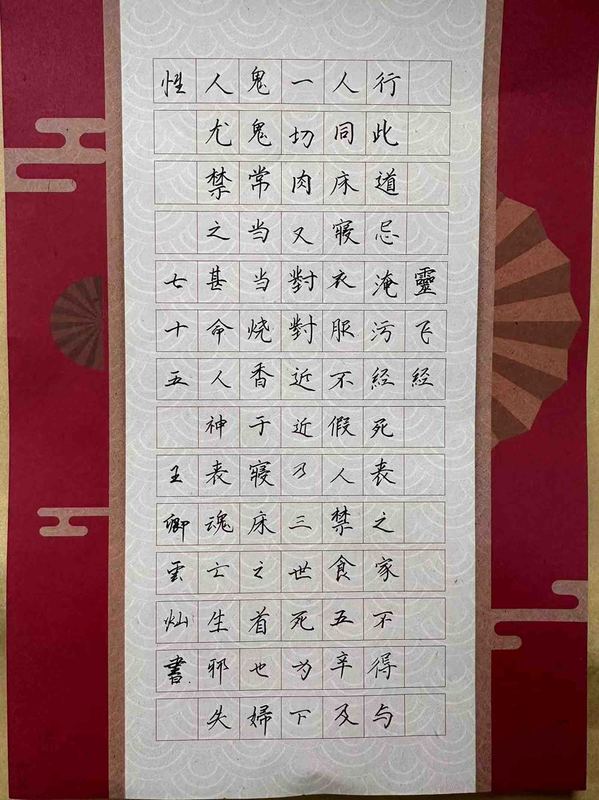 靈飞経
行此道忌淹污経死丧之家不得与
人同床寝衣服不假人禁食五辛及
一切肉又對對近近乃三世死为下
鬼鬼常当当烧香于寝床之首也婦
人尤禁之甚命人神丧魂亡生邪失
性 七十五 王卿雲灿書